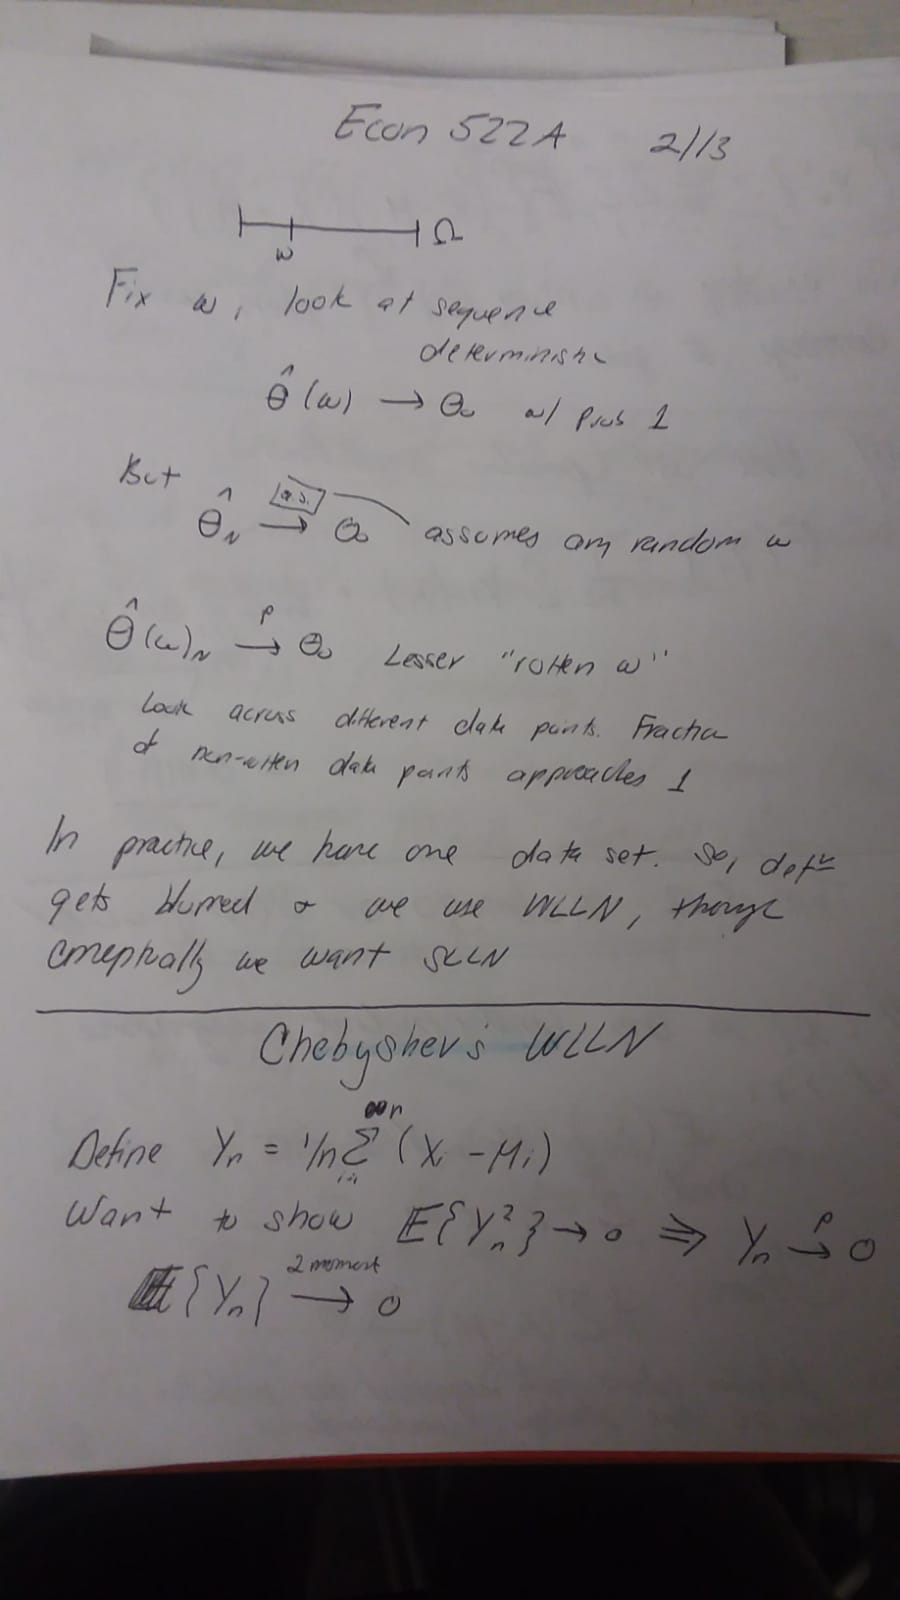 Econ 522A 2/13
Ω
ω
Fix ω, look at sequence
deterministic
θ̂(ω) → θ₀ w/ prob 1
But
θ̂_N →(a.s.) θ₀ assumes any random ω
θ̂(ω)_N →(p) θ₀ Lesser "rotten ω"
Look across different data points. Fraction
of non-rotten data points approaches 1
In practice, we have one data set. So, defⁿ
gets blurred & we use WLLN, though
conceptually we want SLLN
Chebyshev's WLLN
Define Yₙ = 1/n Σ_{i=1}^{n} (Xᵢ - Mᵢ)
Want to show E{Yₙ²} → 0 ⇒ Yₙ →(p) 0
{Yₙ} →(2 moment) 0